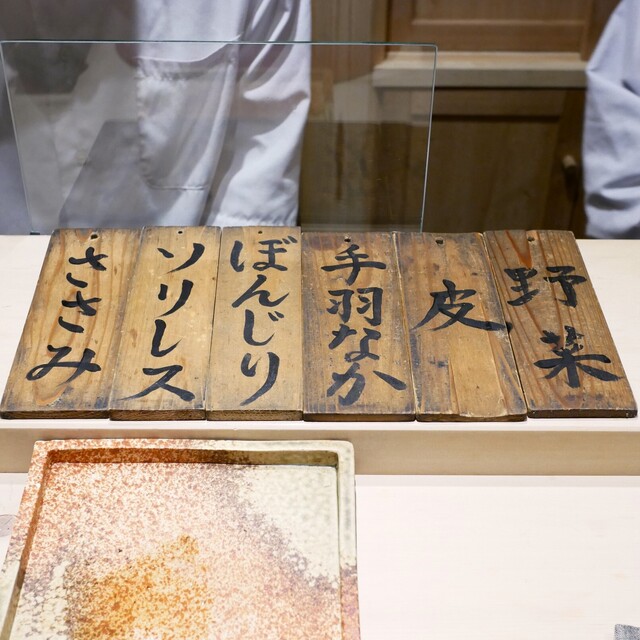 ささみ
ソリレス
ぼんじり
手羽なか
皮
野菜